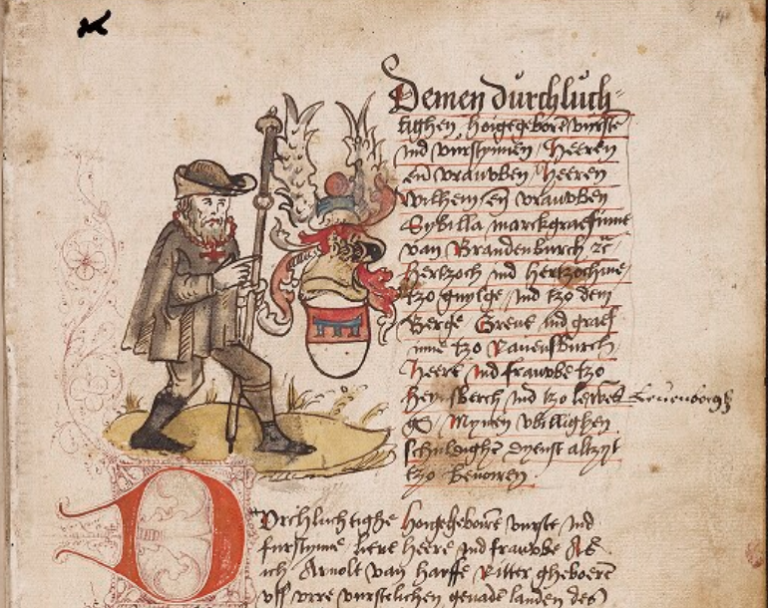 Demen durchluch-
tighen hoigegeboren vurste
ind vurstynnen / Heeren
en vrauwen / heeren
wilhem en vrauwen
Sybilla marckgraefinne
van Brandenburch
hertzoch ind hertzochinne
tzo guylge / ind tzo dem
Berge Greve ind graef
inne tzo Rauensburch
Heere ind frauwe tzo
heynsberch ind tzo lewes
Mynen willighen
schuldighen dyenst altzyt
tzo beuoren.
Leuenborgh
Durchluchtighe hoegheboire vurste / ind
furstynne lieue heere ind frauwe As
ich Arnolt van harffe Ritter gheboere
vss vrre vurstelichen genade landen des